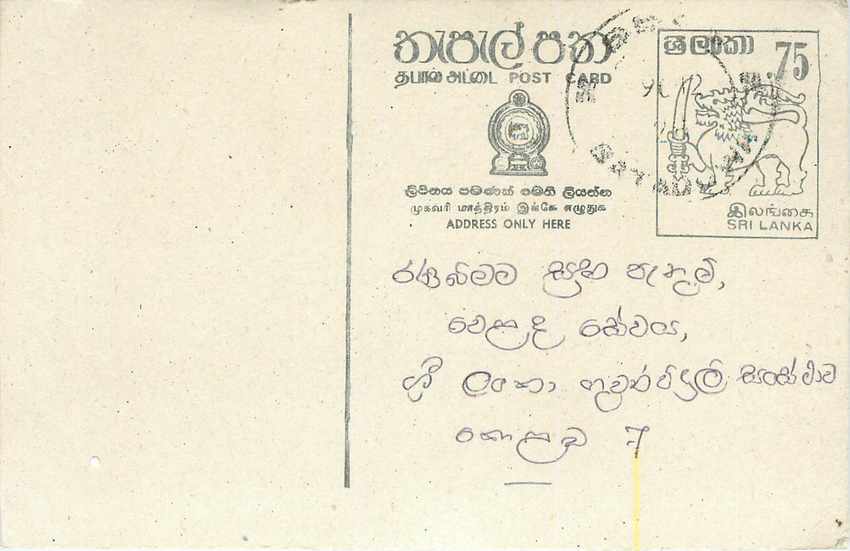 තැපැල් පත
தபால் அட்டை POST CARD
ශ්‍රී ලංකා 75
ලිපිනය පමණක් පමණි ලියන්න
முகவரி மாத்திரம் இங்கே எழுதுக
ADDRESS ONLY HERE
இலங்கை
SRI LANKA
රණබිමට සුභ පැතුම්,
වෙළඳ සේවය,
ශ්‍රී ලංකා ගුවන් විදුලි සංස්ථාව
කොළඹ 7